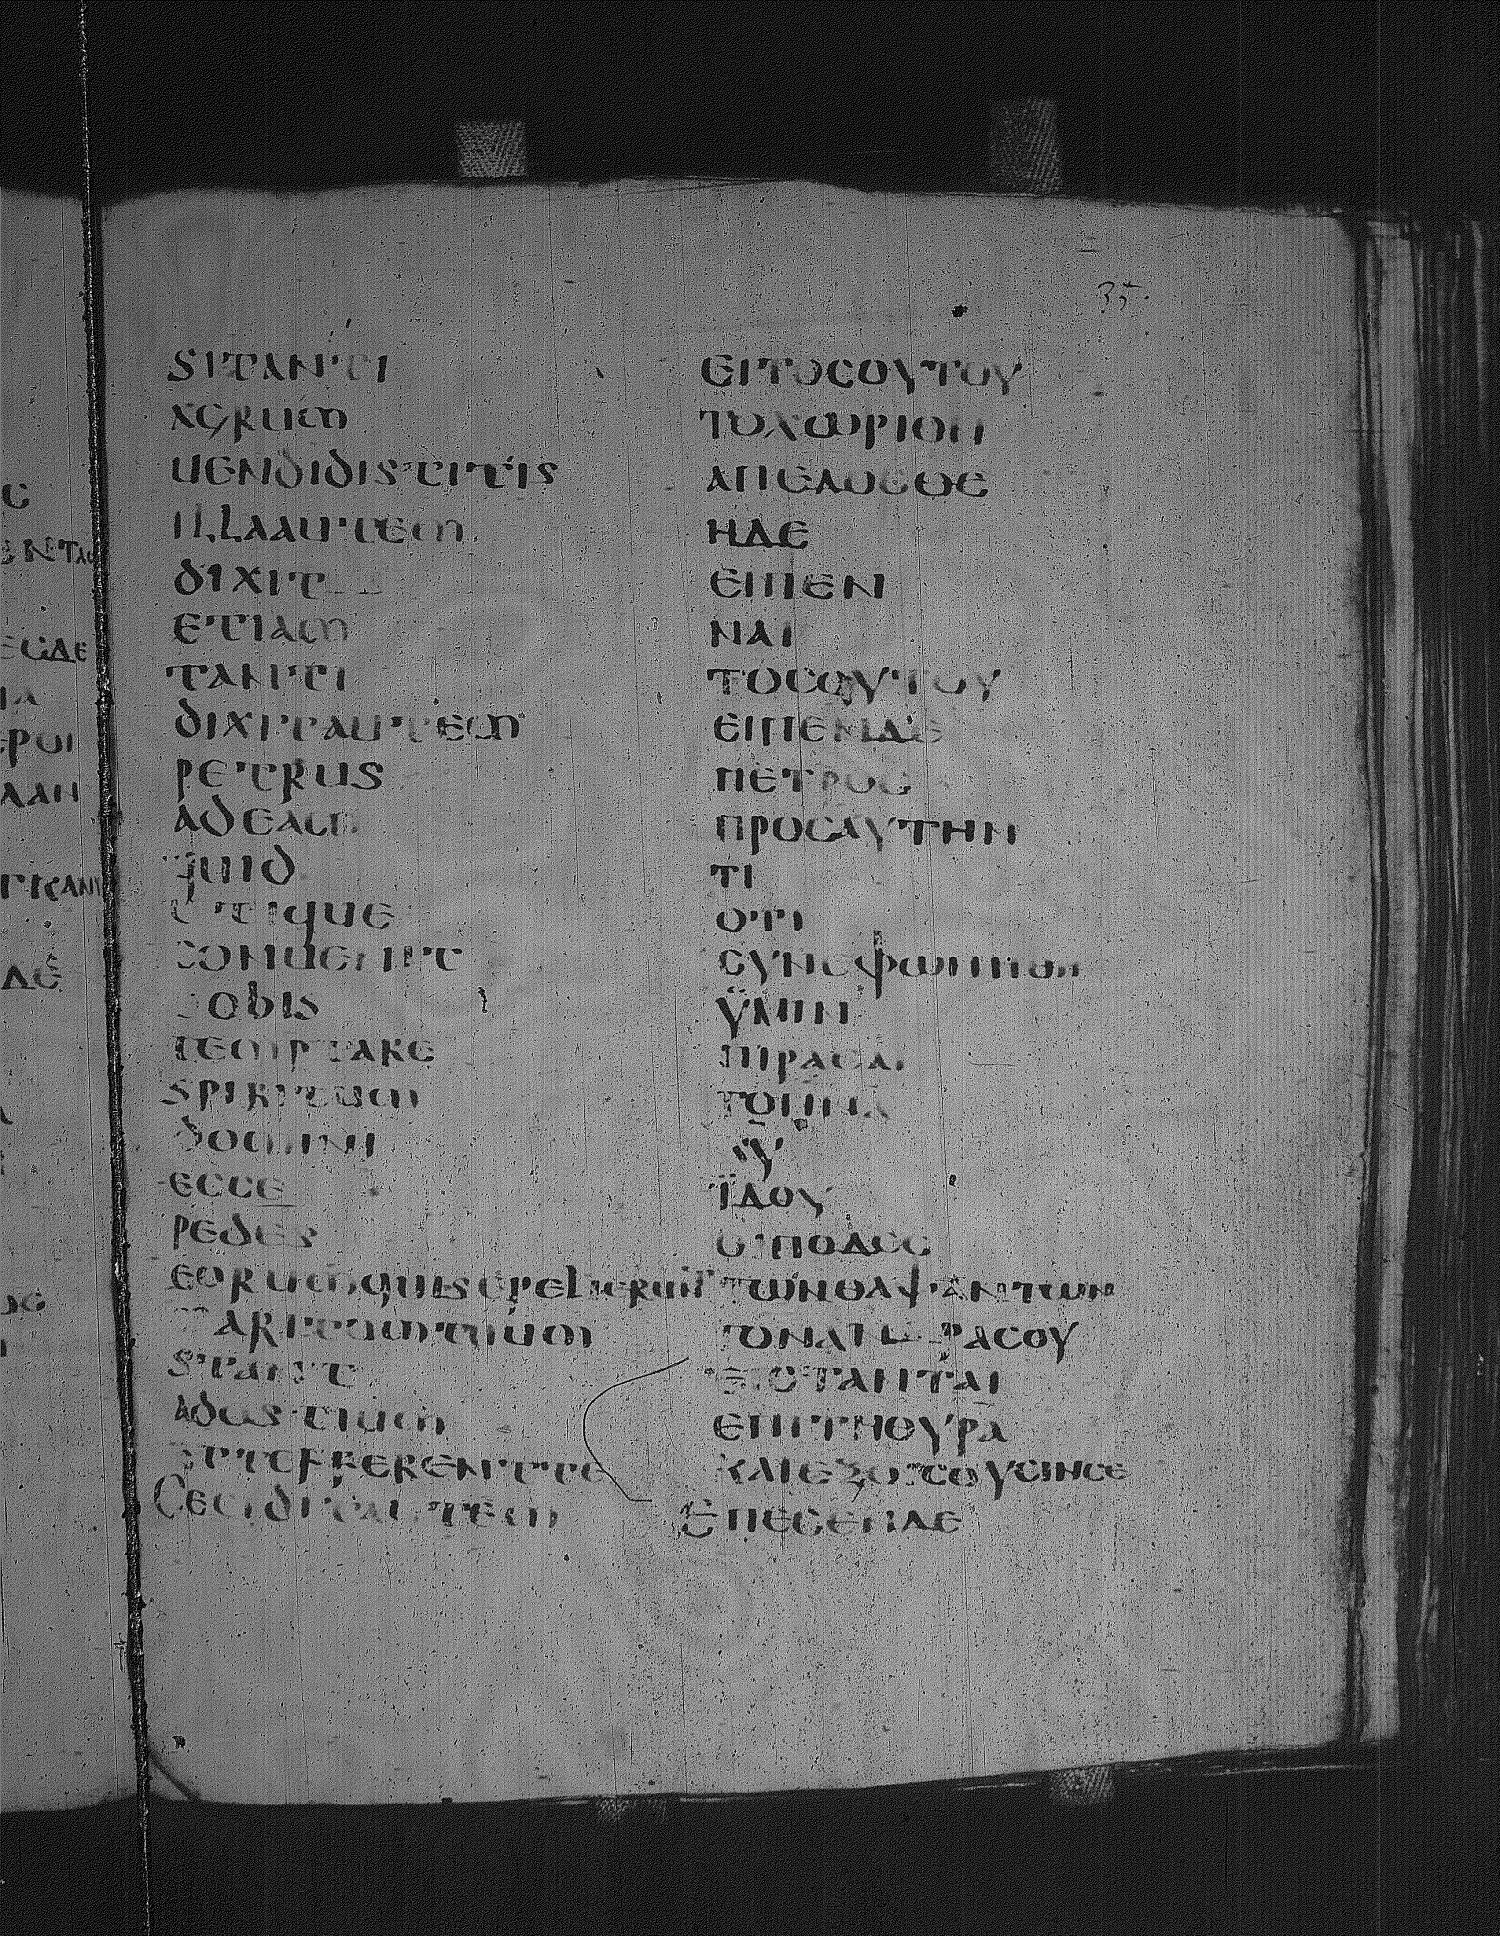 35.
SITANTI
AGRUM
UENDIDISTITIS
ILLAAUTEM
DIXIT
ETIAM
TANTI
DIXITAUTEM
PETRUS
ADEAM
QUID
UTIQUE
CONUENIT
UOBIS
TEMPTARE
SPIRITUM
DOMINI
ECCE
PEDES
EORUMQUISEPELIERUNT
MARITUMTUUM
STANT
ADOSTIUM
ETEFFERENTTE
CECIDITAUTEM
ΕΙΤΟϹΟΥΤΟΥ
ΤΟΧΩΡΙΟΝ
ΑΠΕΔΟϹΘΕ
ΗΔΕ
ΕΙΠΕΝ
ΝΑΙ
ΤΟϹΟΥΤΟΥ
ΕΙΠΕΝΔΕ
ΠΕΤΡΟϹ
ΠΡΟϹΑΥΤΗΝ
ΤΙ
ΟΤΙ
ϹΥΝΕΦΩΝΗΘΗ
ΫΜΙΝ
ΠΙΡΑϹΑΙ
ΤΟΠΝΑ
ΚΥ
ΪΔΟΥ
ΟΙΠΟΔΕϹ
ΤΩΝΘΑΨΑΝΤΩΝ
ΤΟΝΑΝΔΡΑϹΟΥ
ΕΞΙϹΤΑΝΤΑΙ
ΕΠΙΤΗΘΥΡΑ
ΚΑΙΕΞΟΙϹΟΥϹΙΝϹΕ
ΕΠΕϹΕΝΔΕ